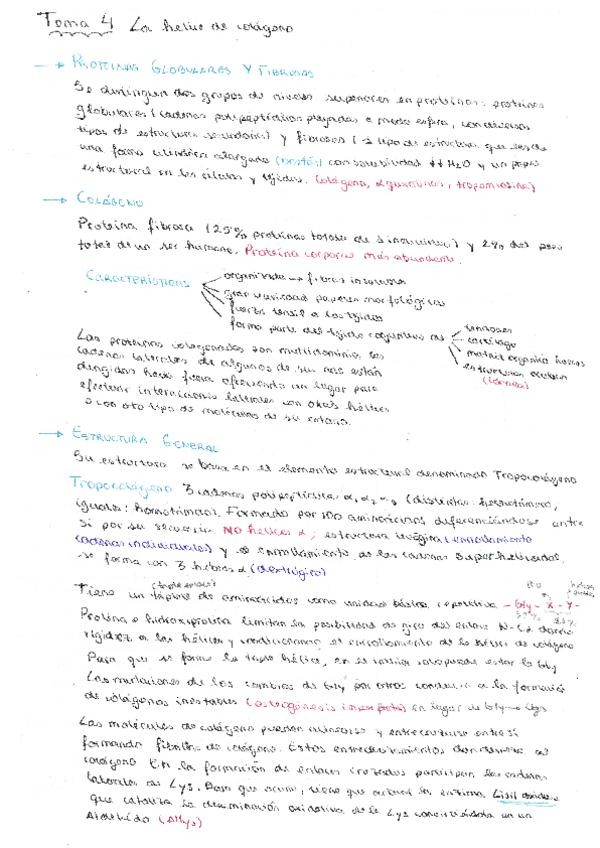 Tema 4 La hélice de colágeno
→ PROTEINAS GLOBULARES Y FIBROSAS
Se distinguen dos grupos de niveles superiores en proteínas: proteínas
globulares (cadenas polipeptídicas plegadas a modo esfera, con diversos
tipos de estructura secundaria) y fibrosas ( tipo de estructura que les da
una forma cilíndrica alargada con solubilidad ↓↓ H2O y un papel
estructural en las células y tejidos. (colágeno, α queratinas, tropomiosina)
→ COLÁGENO
Proteína fibrosa (25% proteínas totales de 1 individuo) y 2% del peso
total de un ser humano. Proteína corporea más abundante.
CARACTERÍSTICAS
organizada → fibras insolubles
gran variedad papeles morfológicos
fuerza tensil a los tejidos
forma parte del tejido conjuntivo de
tendones
cartílago
matriz orgánica huesos
estructura ocular
(córnea)
Las proteínas colagenadas son multidominio, las
cadenas laterales de algunos de sus aas están
dirigidas hacia fuera ofreciendo un lugar para
efectuar interacciones laterales con otras hélices
o con otro tipo de moléculas de su entorno.
→ ESTRUCTURA GENERAL
Su estructura se basa en el elemento estructural denominado Tropocolágeno
Tropocolágeno 3 cadenas polipeptídicas α1 α2 α3 (distintas: heterotrímero,
iguales: homotrímero). Formado por aminoácidos diferenciándose entre
sí por su secuencia. NO hélices α; estructura levógira (enrollamiento
cadenas individuales) y el enrollamiento de las cadenas superhelicoidal
se forma con 3 hebras α (dextrógiro)
(triplete)
Tiene un triplete de aminoácidos como unidad básica repetitiva - Gly - X - Y -
Pro
Prolina e hidroxiprolina limitan las posibilidades de giro del enlace N-Cα dando
rigidez a las hélices y condicionan el enrollamiento de la hélice de colágeno
Para que se forme la triple hélice, en el interior solo puede estar la Gly
Las mutaciones de los cambios de Gly por otros conducen a la formación
de colágenos inestables (osteogénesis imperfecta) en lugar de Gly →
Las moléculas de colágeno pueden alinearse y entrecruzarse entre sí
formando fibrillas de colágeno. Estos entrecruzamientos dan al
colágeno En la formación de enlaces cruzados participan las cadenas
laterales de Lys. Para que ocurra, tiene que actuar la enzima Lisil oxidasa
que cataliza la desaminación oxidativa de la Lys convirtiéndola en un
Aldehído (Allys)